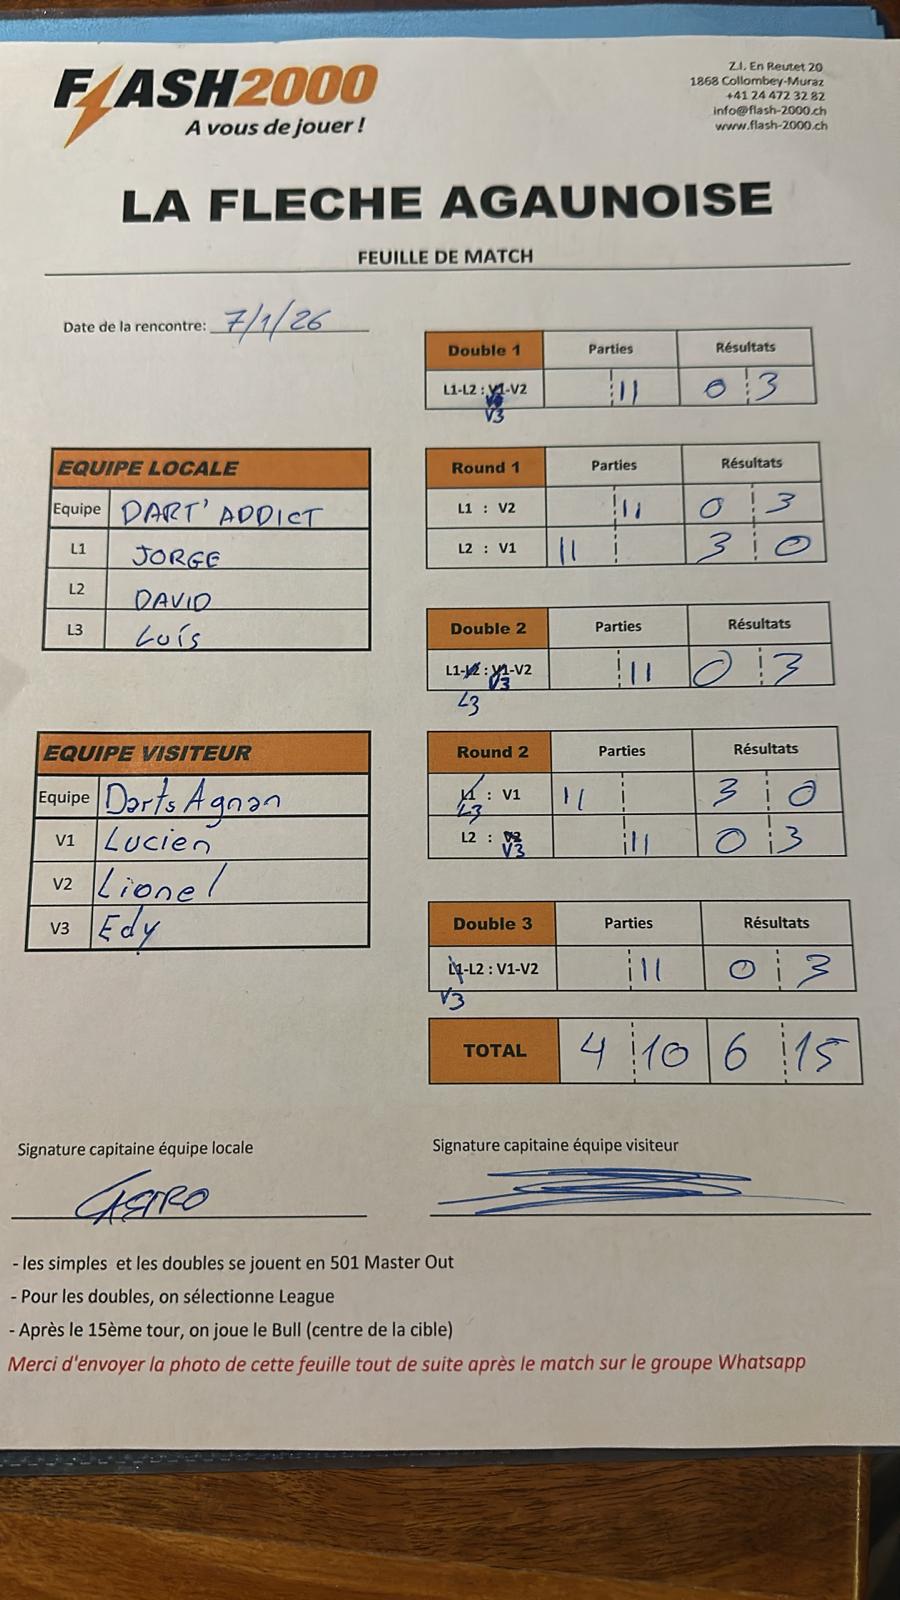 FLASH2000
A vous de jouer !
Z.I. En Reutet 20
1868 Collombey-Muraz
+41 24 472 32 82
info@flash-2000.ch
www.flash-2000.ch
LA FLECHE AGAUNOISE
FEUILLE DE MATCH
Date de la rencontre: 7/1/26
Double 1 Parties Résultats
L1-L2 : V1-V2 || 0 3
V3
EQUIPE LOCALE
Equipe DART'ADDICT
L1 JORGE
L2 DAVID
L3 Luís
Round 1 Parties Résultats
L1 : V2 || 0 3
L2 : V1 || 3 0
Double 2 Parties Résultats
L1-L2 : V1-V2 || 0 3
L3 V3
EQUIPE VISITEUR
Equipe Darts Agnan
V1 Lucien
V2 Lionel
V3 Edy
Round 2 Parties Résultats
L1 : V1 || 3 0
L3
L2 : V2 || 0 3
V3
Double 3 Parties Résultats
L1-L2 : V1-V2 || 0 3
V3
TOTAL 4 10 6 15
Signature capitaine équipe locale
Signature capitaine équipe visiteur
- les simples et les doubles se jouent en 501 Master Out
- Pour les doubles, on sélectionne League
- Après le 15ème tour, on joue le Bull (centre de la cible)
Merci d'envoyer la photo de cette feuille tout de suite après le match sur le groupe Whatsapp